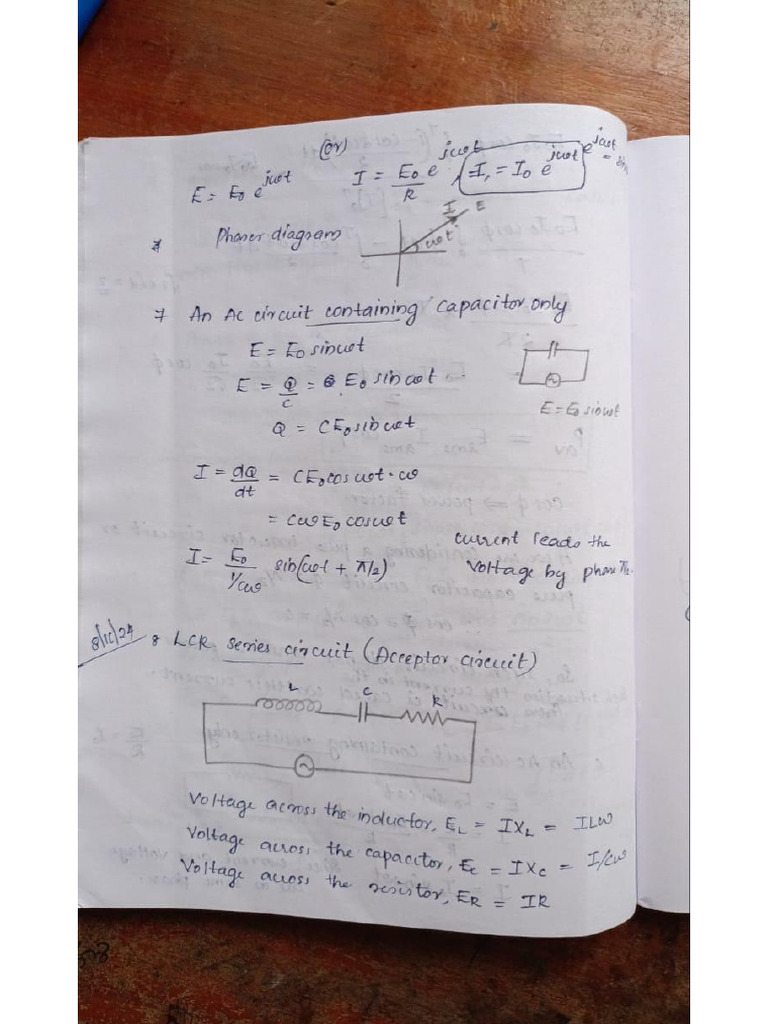 (or)
E = E₀ e^jωt I = E₀/R e^jωt, I, = I₀ e^jωt e^jωt
I E
ωt
* Phasor diagram
7 An Ac circuit containing capacitor only
E = E₀ sinωt
E = Q/C = E₀ sinωt
E = E₀ sinωt
Q = CE₀ sinωt
I = dQ/dt = CE₀ cosωt·ω
= CωE₀ cosωt
current leads the
I = E₀/(1/Cω) sin(ωt + π/2) voltage by phase π/2.
8/10/24 8 LCR series circuit (Acceptor circuit)
L C R
Voltage across the inductor, E_L = IX_L = ILω
Voltage across the capacitor, E_C = IX_C = I/Cω
Voltage across the resistor, E_R = IR